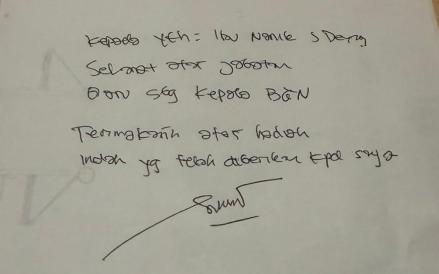 Kepada Yth: Ibu Nanik S Deyang
Selamat atas jabatan
sbg Kepala BGN
Terimakasih atas hadiah
indah yg telah diberikan kpd saya